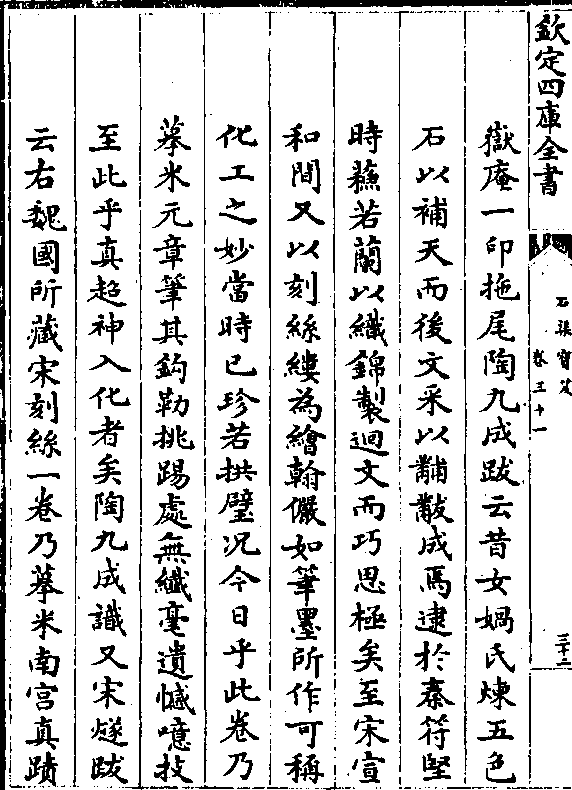 欽定四庫全書
石渠寶笈
卷三十一
三十二
嶽庵一印拖尾陶九成跋云昔女媧氏煉五色
石以補天而後文采以黼黻成焉逮於秦符堅
時蘓若蘭以織錦製迴文而巧思極矣至宋宣
和間又以刻絲縷為繪翰儼如筆墨所作可稱
化工之妙當時已珍若拱璧况今日乎此卷乃
摹米元章筆其鈎勒挑踢處無纎毫遺憾噫技
至此乎真超神入化者矣陶九成識又宋燧跋
云右魏國所藏宋刻絲一卷乃摹米南宮真蹟